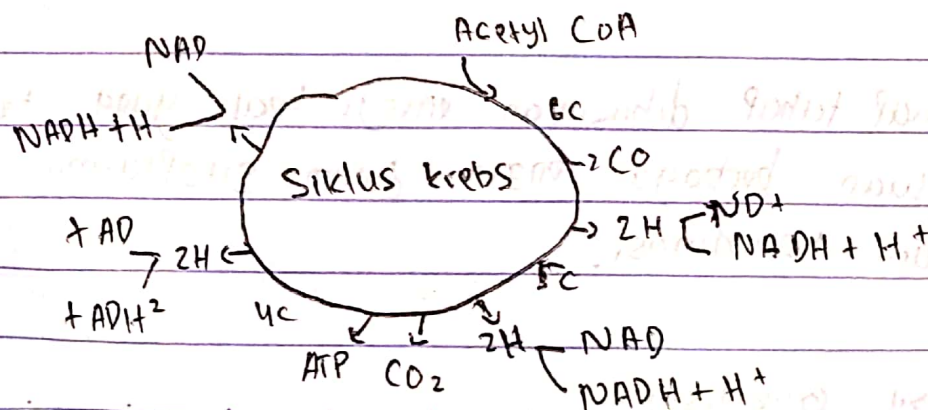 Acetyl CoA
NAD
NADH + H
6C
Siklus krebs
2 CO
2H
ND+
NADH + H+
+ AD
2H
+ ADH²
5C
4C
ATP
CO2
2H
NAD
NADH + H+